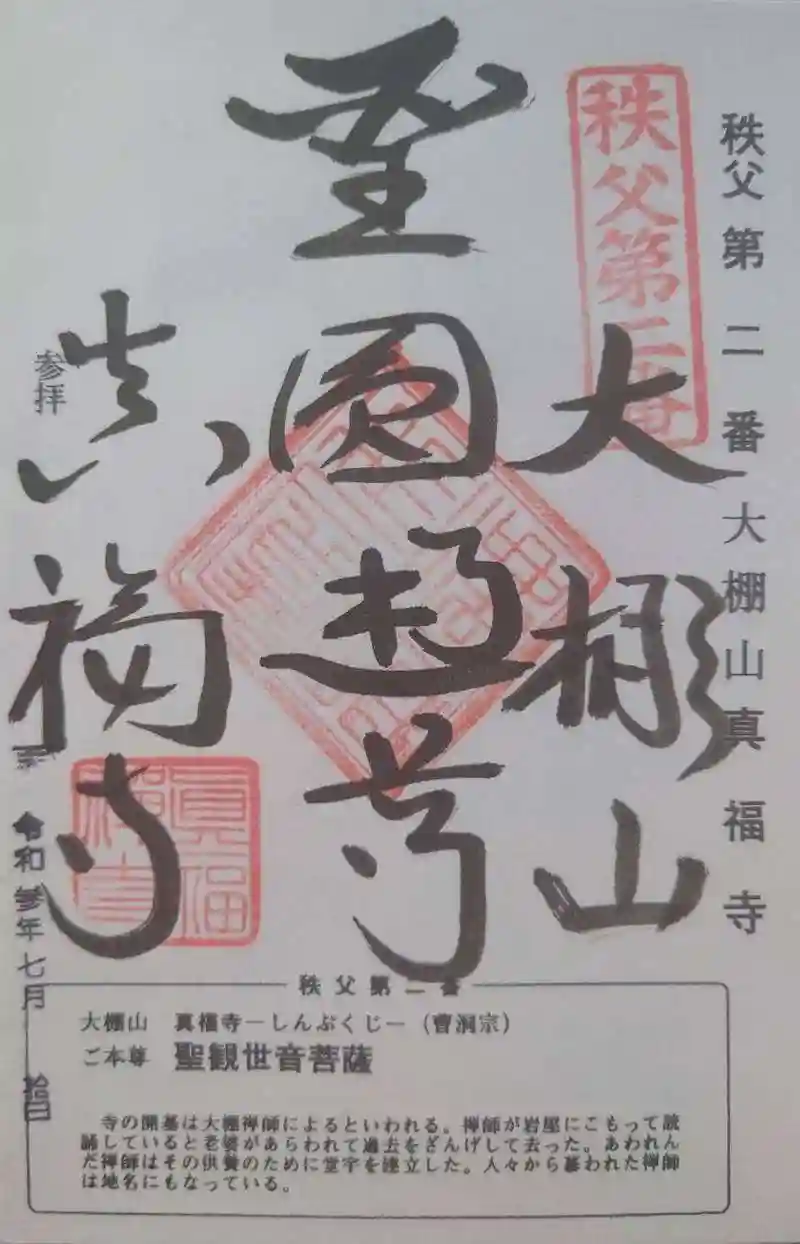 秩父第二番大棚山真福寺
秩父第二番
大棚山
聖圓
真福寺
参拝
令和参年七月
秩父第二番
大棚山 真福寺－しんぷくじ－（曹洞宗）
ご本尊 聖観世音菩薩
寺の開基は大棚禅師によるといわれる。禅師が岩屋にこもって読
誦していると老婆があらわれて過去をざんげして去った。あわれん
だ禅師はその供養のために堂宇を建立した。人々から慕われた禅師
は地名にもなっている。